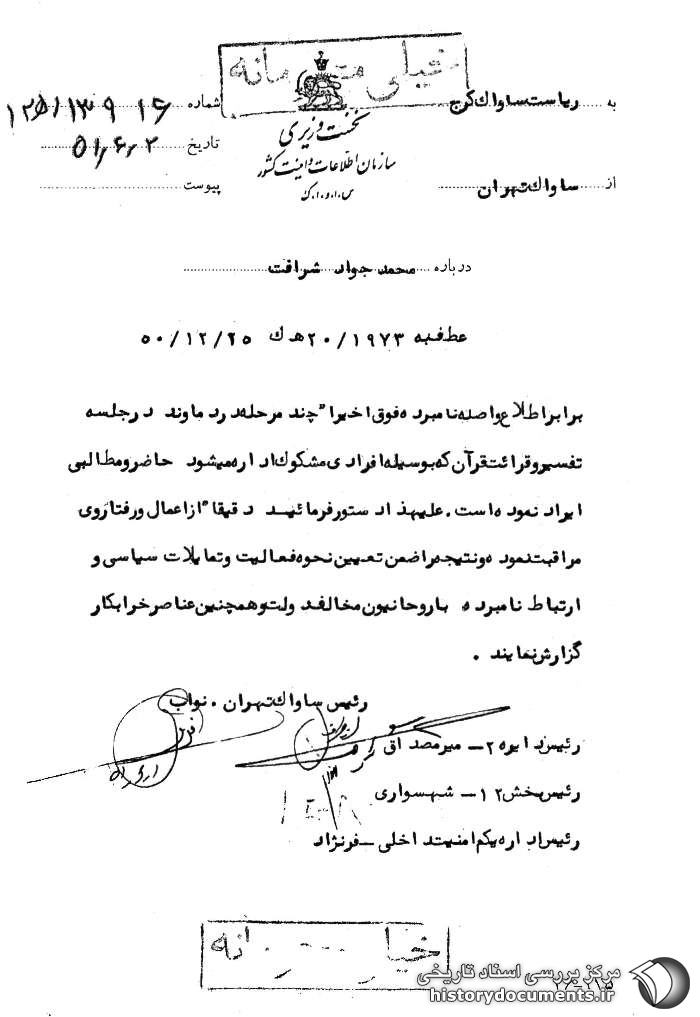 خیلی محرمانه
به ریاست ساواک کرج
از ساواک تهران
نخست وزیری
سازمان اطلاعات و امنیت کشور
س.ا.و.ا.ک
شماره
تاریخ ۵۱/۶/۲
پیوست
درباره محمد جواد شرافت
عطف به ۲۰/۱۹۷۳ ه ک ۵۰/۱۲/۲۵
برابر اطلاع واصله نامبرده فوق اخیرا" چند مرحله در دماوند در جلسه
تفسیر و قرائت قرآن که بوسیله افرادی مشکوک اداره میشود حاضر و مطالبی
ایراد نموده است. علیهذا دستور فرمائید دقیقا" از اعمال و رفتار وی
مراقبت نموده و نتیجه را ضمن تعیین نحوه فعالیت و تمایلات سیاسی و
ارتباط نامبرده با روحانیون مخالف دولت و همچنین عناصر خرابکار
گزارش نمایند .
رئیس ساواک تهران . نواب
رئیس دایره ۲ – میرمصداق
رئیس بخش ۱۲ – شهسواری
رئیس اداره یکم امنیت داخلی – فرنژاد
خیلی محرمانه
مرکز بررسی اسناد تاریخی
historydocuments.ir